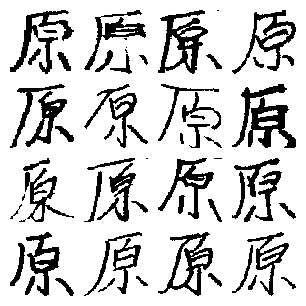 原原原原
原原原原
原原原原
原原原原